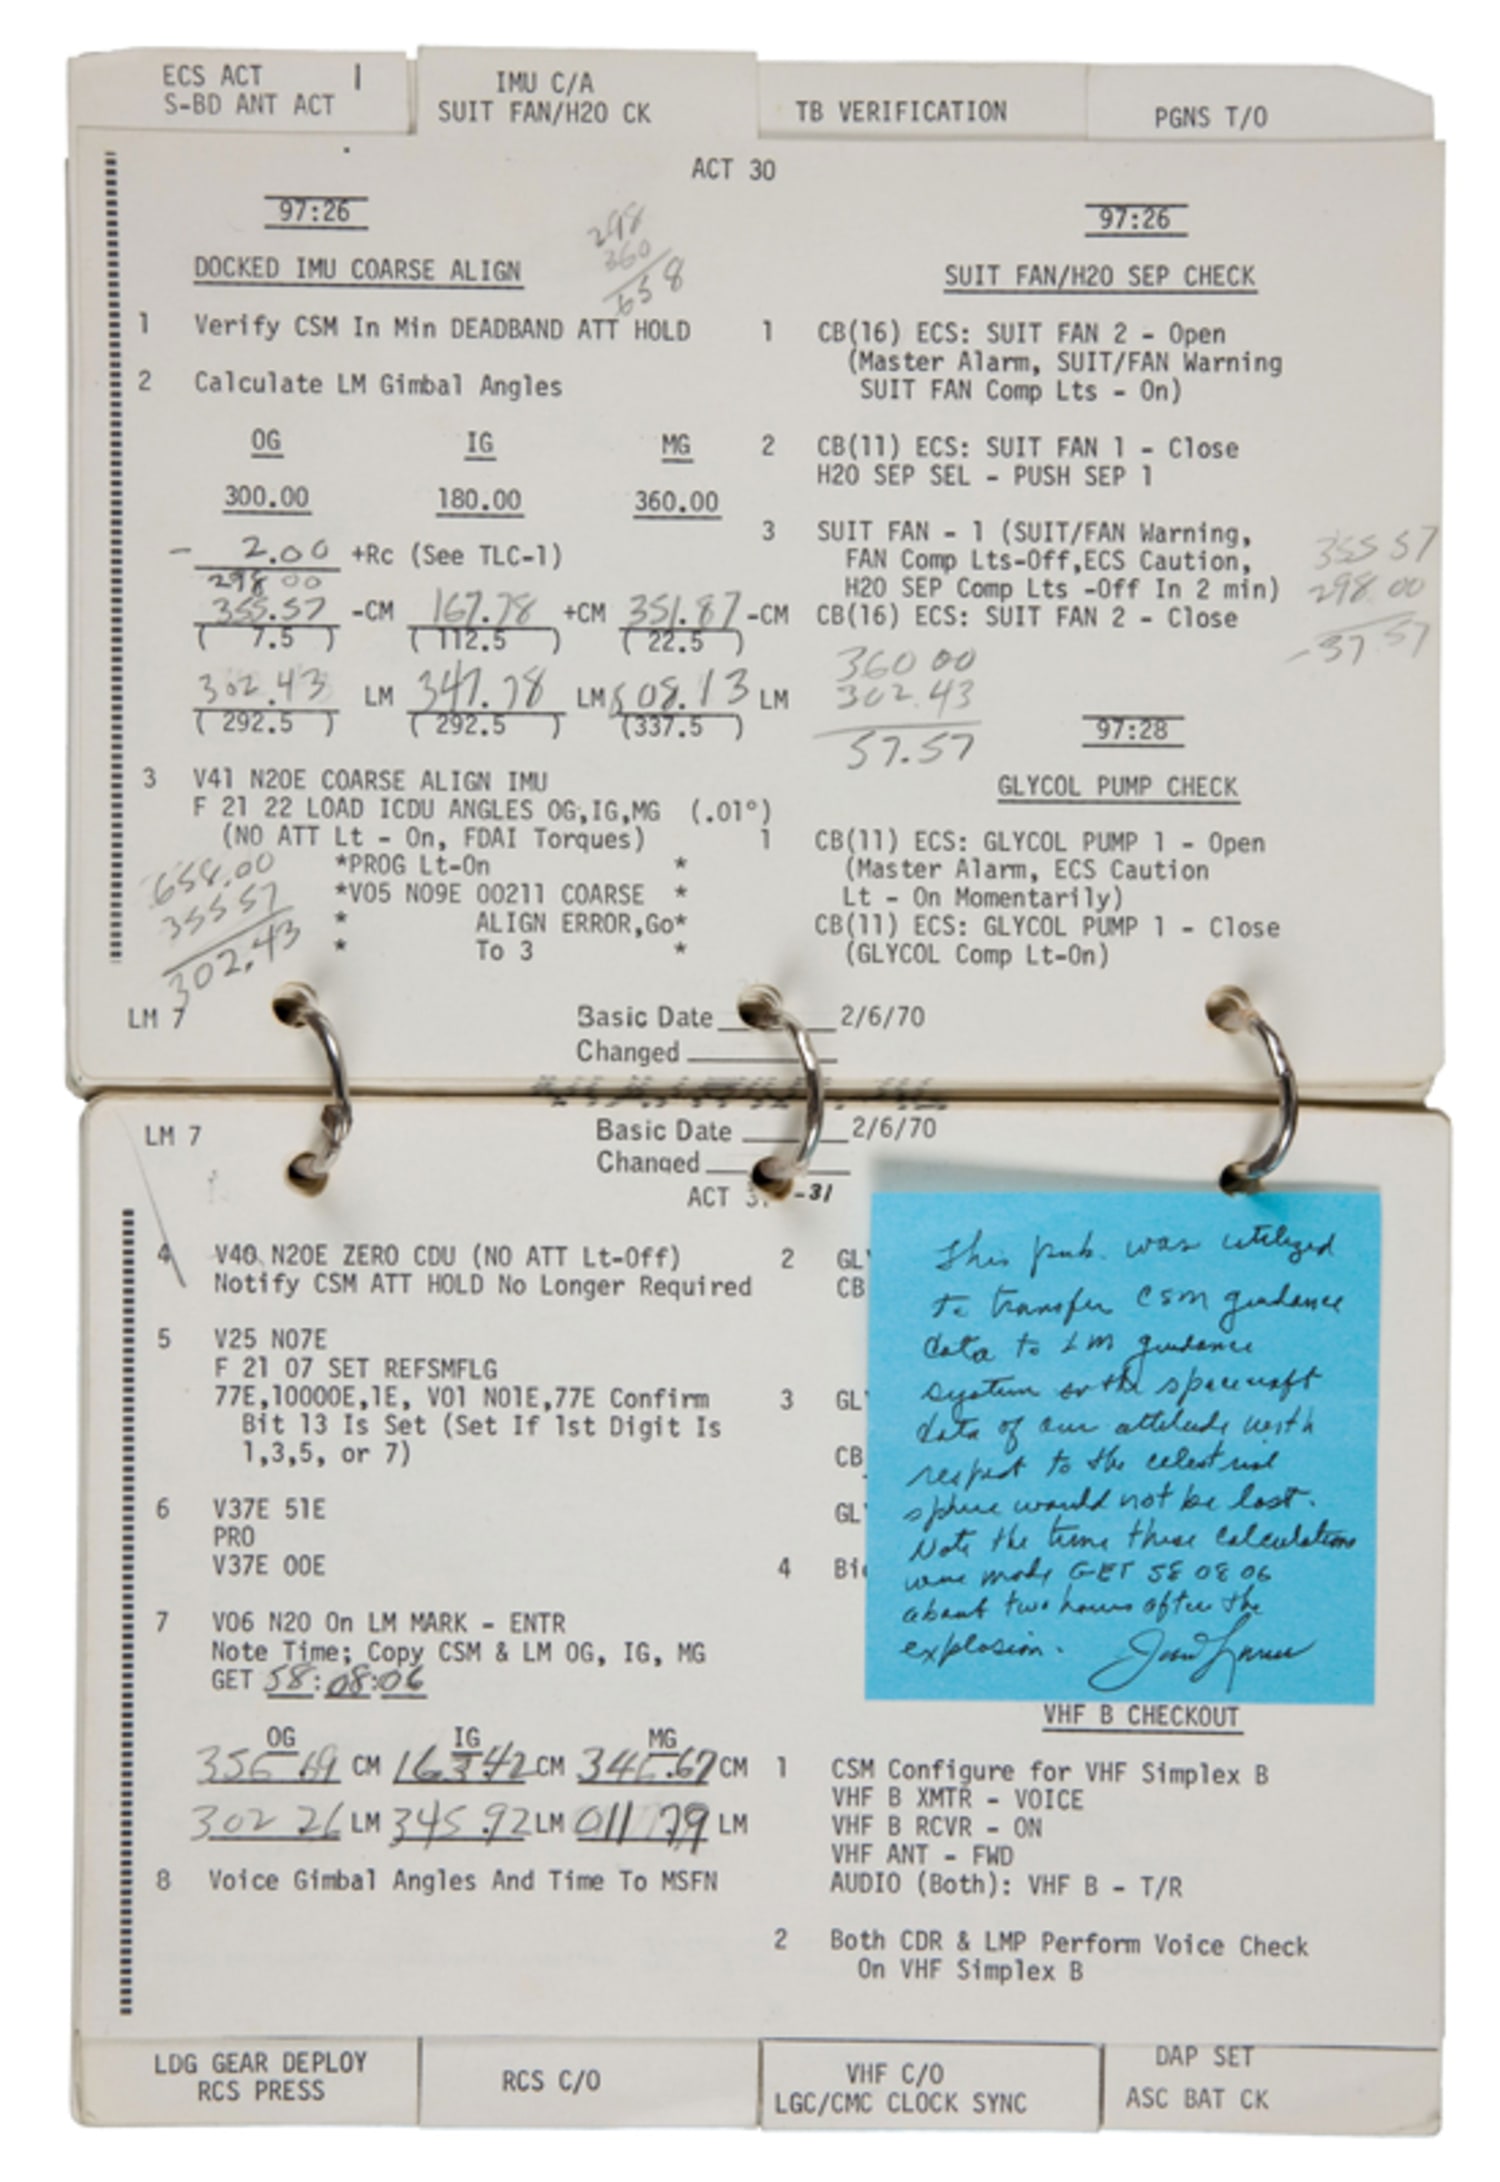 ECS ACT
S-BD ANT ACT
IMU C/A
SUIT FAN/H2O CK
TB VERIFICATION
PGNS T/O
ACT 30
97:26
298
360
658
DOCKED IMU COARSE ALIGN
1 Verify CSM In Min DEADBAND ATT HOLD
2 Calculate LM Gimbal Angles
OG IG MG
300.00 180.00 360.00
- 2.00 +Rc (See TLC-1)
298 00
355.57 -CM 167.78 +CM 351.87 -CM
( 7.5 ) ( 112.5 ) ( 22.5 )
302.43 LM 347.78 LM 08.13 LM
( 292.5 ) ( 292.5 ) (337.5 )
3 V41 N20E COARSE ALIGN IMU
F 21 22 LOAD ICDU ANGLES OG,IG,MG (.01°)
(NO ATT Lt - On, FDAI Torques)
*PROG Lt-On *
*V05 N09E 00211 COARSE *
* ALIGN ERROR,Go*
* To 3 *
658.00
355 57
302.43
97:26
SUIT FAN/H2O SEP CHECK
1 CB(16) ECS: SUIT FAN 2 - Open
(Master Alarm, SUIT/FAN Warning
SUIT FAN Comp Lts - On)
2 CB(11) ECS: SUIT FAN 1 - Close
H2O SEP SEL - PUSH SEP 1
3 SUIT FAN - 1 (SUIT/FAN Warning,
FAN Comp Lts-Off,ECS Caution,
H2O SEP Comp Lts -Off In 2 min)
CB(16) ECS: SUIT FAN 2 - Close
355 57
298.00
-57.57
360 00
302.43
57.57
97:28
GLYCOL PUMP CHECK
1 CB(11) ECS: GLYCOL PUMP 1 - Open
(Master Alarm, ECS Caution
Lt - On Momentarily)
CB(11) ECS: GLYCOL PUMP 1 - Close
(GLYCOL Comp Lt-On)
LM 7
Basic Date 2/6/70
Changed
LM 7
Basic Date 2/6/70
Changed
ACT 3 -31
4 V40 N20E ZERO CDU (NO ATT Lt-Off)
Notify CSM ATT HOLD No Longer Required
5 V25 N07E
F 21 07 SET REFSMFLG
77E,10000E,1E, V01 N01E,77E Confirm
Bit 13 Is Set (Set If 1st Digit Is
1,3,5, or 7)
6 V37E 51E
PRO
V37E 00E
7 V06 N20 On LM MARK - ENTR
Note Time; Copy CSM & LM OG, IG, MG
GET 58:08:06
OG IG MG
356 69 CM 163 42 CM 346.67 CM
302 26 LM 345.92 LM 011 79 LM
8 Voice Gimbal Angles And Time To MSFN
2 GL
CB
3 GL
CB
GL
4 Bi
This pub. was utilized
to transfer CSM guidance
data to LM guidance
system so the spacecraft
data of our attitude with
respect to the celestrial
sphere would not be lost.
Note the time these calculations
were made GET 58 08 06
about two hours after the
explosion. James Lovell
VHF B CHECKOUT
1 CSM Configure for VHF Simplex B
VHF B XMTR - VOICE
VHF B RCVR - ON
VHF ANT - FWD
AUDIO (Both): VHF B - T/R
2 Both CDR & LMP Perform Voice Check
On VHF Simplex B
LDG GEAR DEPLOY
RCS PRESS
RCS C/O
VHF C/O
LGC/CMC CLOCK SYNC
DAP SET
ASC BAT CK